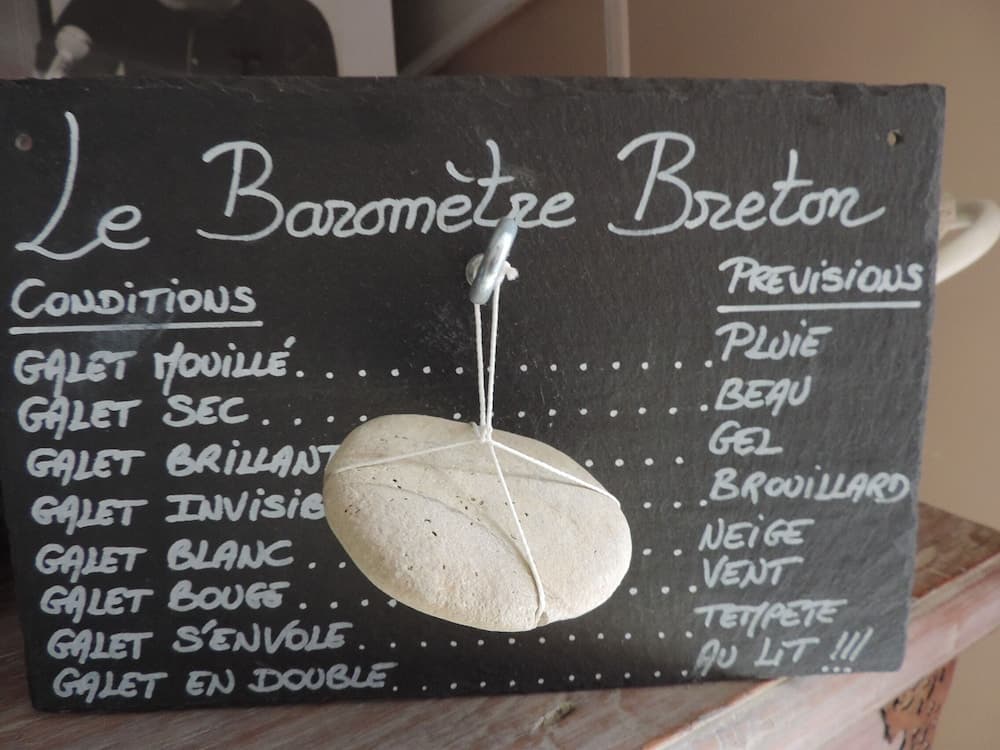 Le Baromètre Breton
CONDITIONS PREVISIONS
GALET MOUILLÉ..................PLUIE
GALET SEC..................BEAU
GALET BRILLANT.....GEL
GALET INVISIB....BROUILLARD
GALET BLANC.....NEIGE
GALET BOUGE........VENT
GALET S'ENVOLE..................TEMPETE
GALET EN DOUBLE..................AU LIT !!!